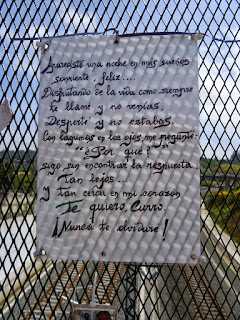 Apareciste una noche en mis sueños
sonriente, feliz...
Disfrutando de la vida como siempre
te llamé y no venías,
Desperté y no estabas.
Con lagrimas en los ojos, me pregunté:
"¿Por qué?"
sigo sin encontrar la respuesta.
Tan lejos...
Y tan cerca en mi corazón
Te quiero, Curro.
¡Nunca te olvidaré!